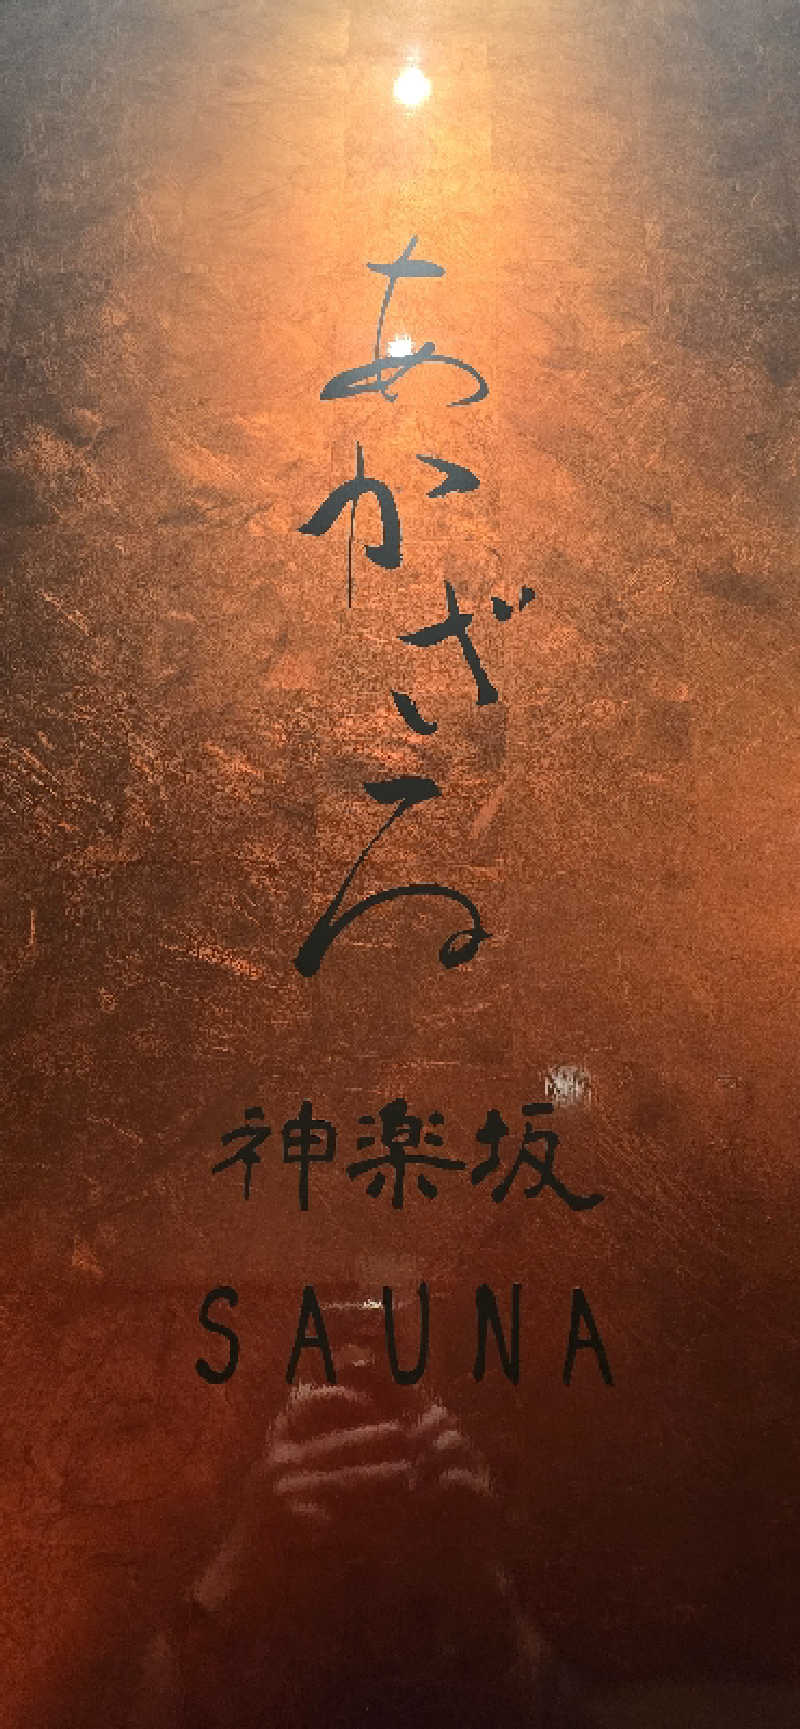 あかざる
神楽坂
SAUNA